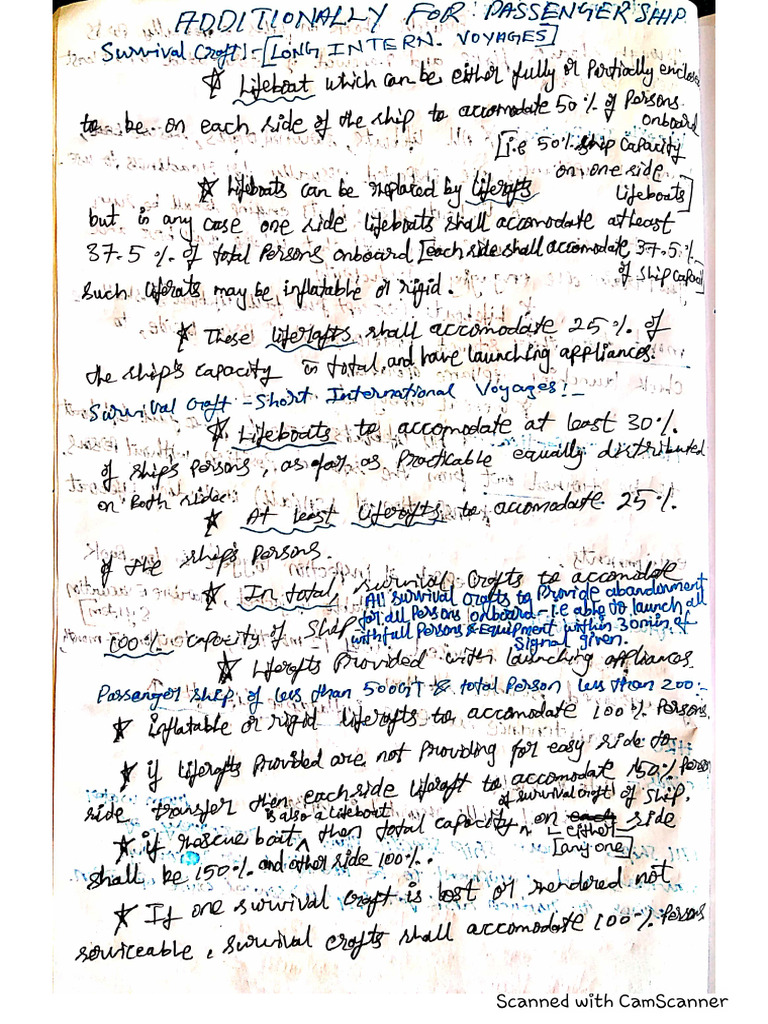 ADDITIONALLY FOR PASSENGER SHIP
Survival Craft:- [LONG INTERN. VOYAGES]
☆ Lifeboat which can be either fully or Partially enclose
to be on each side of the ship to accomodate 50% of Persons
onboard
[i.e 50% ship capacity
on one side
☆ Lifeboats can be replaced by liferafts lifeboats]
but in any case one side lifeboats shall accomodate atleast
37.5% of total Persons onboard [each side shall accomodate 37.5%
of ship capaci
Such liferats may be inflatable or rigid.
☆ These liferafts shall accomodate 25% of
the ship's capacity in total, and have launching appliances.
Survival Craft - Short International Voyages:-
☆ Lifeboats to accomodate at least 30%
of ships Persons, as far as Practicable equally distributed
on Both sides.
☆ At least liferafts to accomodate 25%
of the ships Persons.
☆ In total, survival Crafts to accomodate
100% capacity of Ship
All survival crafts to Provide abandonment
for all Persons onboard - i.e able to launch all
with full Persons & Equipment within 30min of
signal given.
☆ Liferafts Provided with launching appliances.
Passenger ship of less than 500GT & total Person less than 200:-
☆ inflatable or rigid liferafts to accomodate 100% Persons.
☆ if liferafts Provided are not Providing for easy side to
side transfer then each side liferaft to accomodate 150% Perso
of ship.
☆ if rescue boat is also a lifeboat then total capacity of survival craft on either side
[any one]
shall be 150% and other side 100%.
☆ If one survival craft is lost or rendered not
serviceable, survival crafts shall accomodate 100% Persons
Scanned with CamScanner